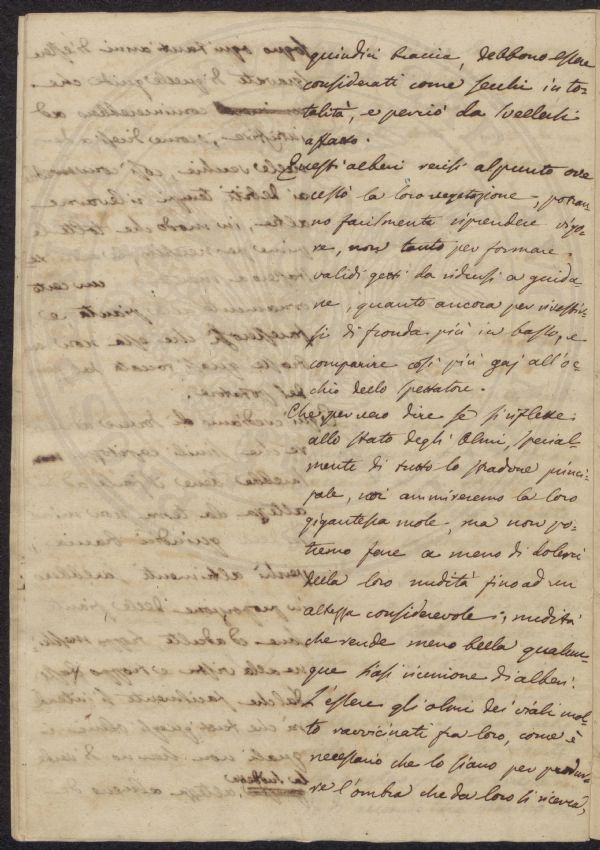 quindici braccia, debbono essere
considerati come secchi in to-
talità, e perciò da svellersi
affatto.
Questi alberi recisi al punto ove
cessò la loro vegetazione, potran-
no facilmente riprendere vigo-
re, non tanto per formare
validi getti da ridursi a guida
ne, quanto ancora per rivestir-
si di fronda più in basso, e
comparire così più gaj all'oc-
chio dello spettatore.
Che per vero dire se si riflette
allo stato degli Olmi, special-
mente di tutto lo stradone princi-
pale, noi ammireremo la loro
gigantesca mole, ma non po-
tremo fare a meno di dolerci
della loro nudità fino ad un
altezza considerevole; nudità
che rende meno bella qualun-
que siasi riunione di alberi.
L'essere gli olmi dei viali mol-
to ravvicinati fra loro, come è
necessario che lo siano per produr-
re l'ombra che da loro si ricerca,